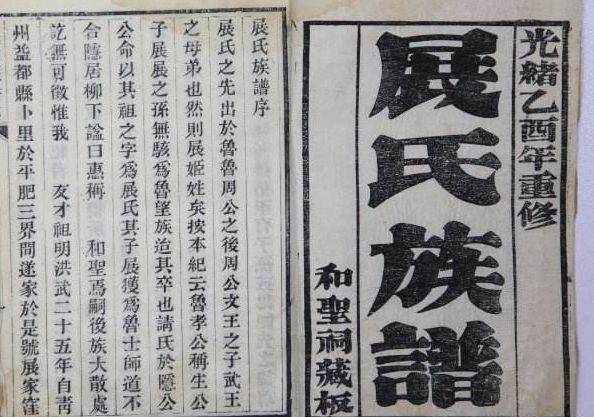 光緒乙酉年重修
展氏族譜
和聖祠藏板
展氏族譜序
展氏之先出於魯魯周公之後周公文王之子武王
之母弟也然則展姬姓矣按本紀云魯孝公稱生公
子展展之孫無駭爲魯望族迨其卒也請氏於隱公
公命以其祖之字爲展氏其子展獲爲魯士師道不
合隱居柳下諡曰惠稱 和聖焉嗣後族大散處
訖無可徵惟我 友才祖明洪武二十五年自靑
州益都縣卜里於平肥三界間遂家於是號展家窪